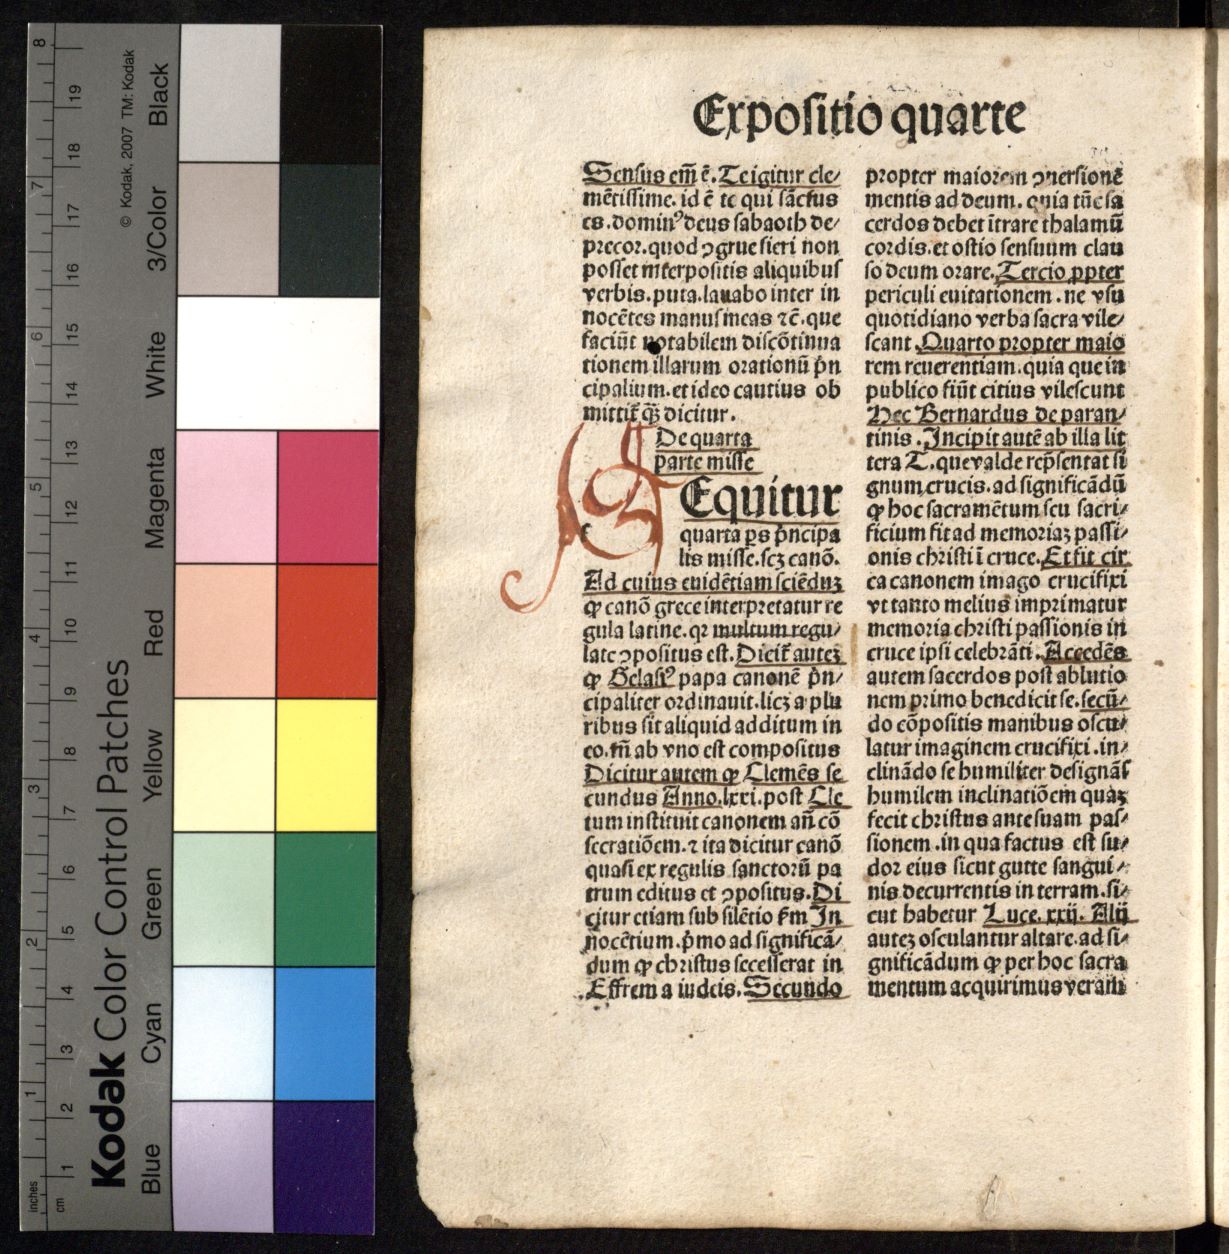 Expositio quarte
Sensus em̃ ē. Te igitur cle⸗
mētissime. id ē te qui sāctus
es. dominꝰ deus sabaoth de⸗
precor. quod ꝯgrue fieri non
posset interpositis aliquibus
verbis. puta. lauabo inter in
nocētes manus meas ⁊c̄. que
faciūt notabilem discōtinua
tionem illarum orationū p̄n
cipalium. et ideo cautius ob
mittit̄ q̄ꝫ dicitur.
De quarta
parte misse
SEquitur
quarta ꝑs p̄ncipa
lis misse. scꝫ canō.
Ad cuius euidētiam sciēduꝫ
ꝙ canō grece interpretatur re
gula latine. qꝛ multum regu⸗
late ꝯpositus est. Dicit̄ auteꝫ
ꝙ Gelasiꝰ papa canonē p̄n⸗
cipaliter ordinauit. licꝫ a plu
ribus sit aliquid additum in
eo. tñ ab vno est compositus
Dicitur autem ꝙ Clemēs se
cundus Anno. lxxi. post Cle
tum instituit canonem añ cō
secratiōem. ⁊ ita dicitur canō
quasi ex regulis sanctorū pa
trum editus et ꝯpositus. Di
citur etiam sub silētio ẜm In
nocētium. p̄mo ad significā⸗
dum ꝙ christus secesserat in
Effrem a iudeis. Secundo
propter maiorem ꝯuersionē
mentis ad deum. quia tūc sa
cerdos debet ītrare thalamū
cordis. et ostio sensuum clau
so deum orare. Tercio ꝓpter
periculi euitationem. ne vsu
quotidiano verba sacra vile⸗
scant. Quarto propter maio
rem reuerentiam. quia que in
publico fiūt citius vilescunt
Hec Bernardus de paran⸗
tinis. Incipit autē ab illa lit
tera T. que valde rep̄sentat si
gnum crucis. ad significādū
ꝙ hoc sacramētum seu sacri⸗
ficium fit ad memoriaꝫ passi⸗
onis christi ī cruce. Et fit cir
ca canonem imago crucifixi
vt tanto melius imprimatur
memoria christi passionis in
cruce ipsi celebrāti. Accedēs
autem sacerdos post ablutio
nem primo benedicit se. secū⸗
do cōpositis manibus oscu⸗
latur imaginem crucifixi. in⸗
clinādo se humiliter designās
humilem inclinatiōem quaꝫ
fecit christus ante suam pas⸗
sionem. in qua factus est su⸗
dor eius sicut gutte sangui⸗
nis decurrentis in terram. si⸗
cut habetur Luce. xxij. Alij
auteꝫ osculantur altare. ad si⸗
gnificādum ꝙ per hoc sacra
mentum acquirimus veram
Kodak Color Control Patches
© Kodak, 2007 TM: Kodak
Blue Cyan Green Yellow Red Magenta White 3/Color Black
inches 1 2 3 4 5 6 7 8
cm 1 2 3 4 5 6 7 8 9 10 11 12 13 14 15 16 17 18 19